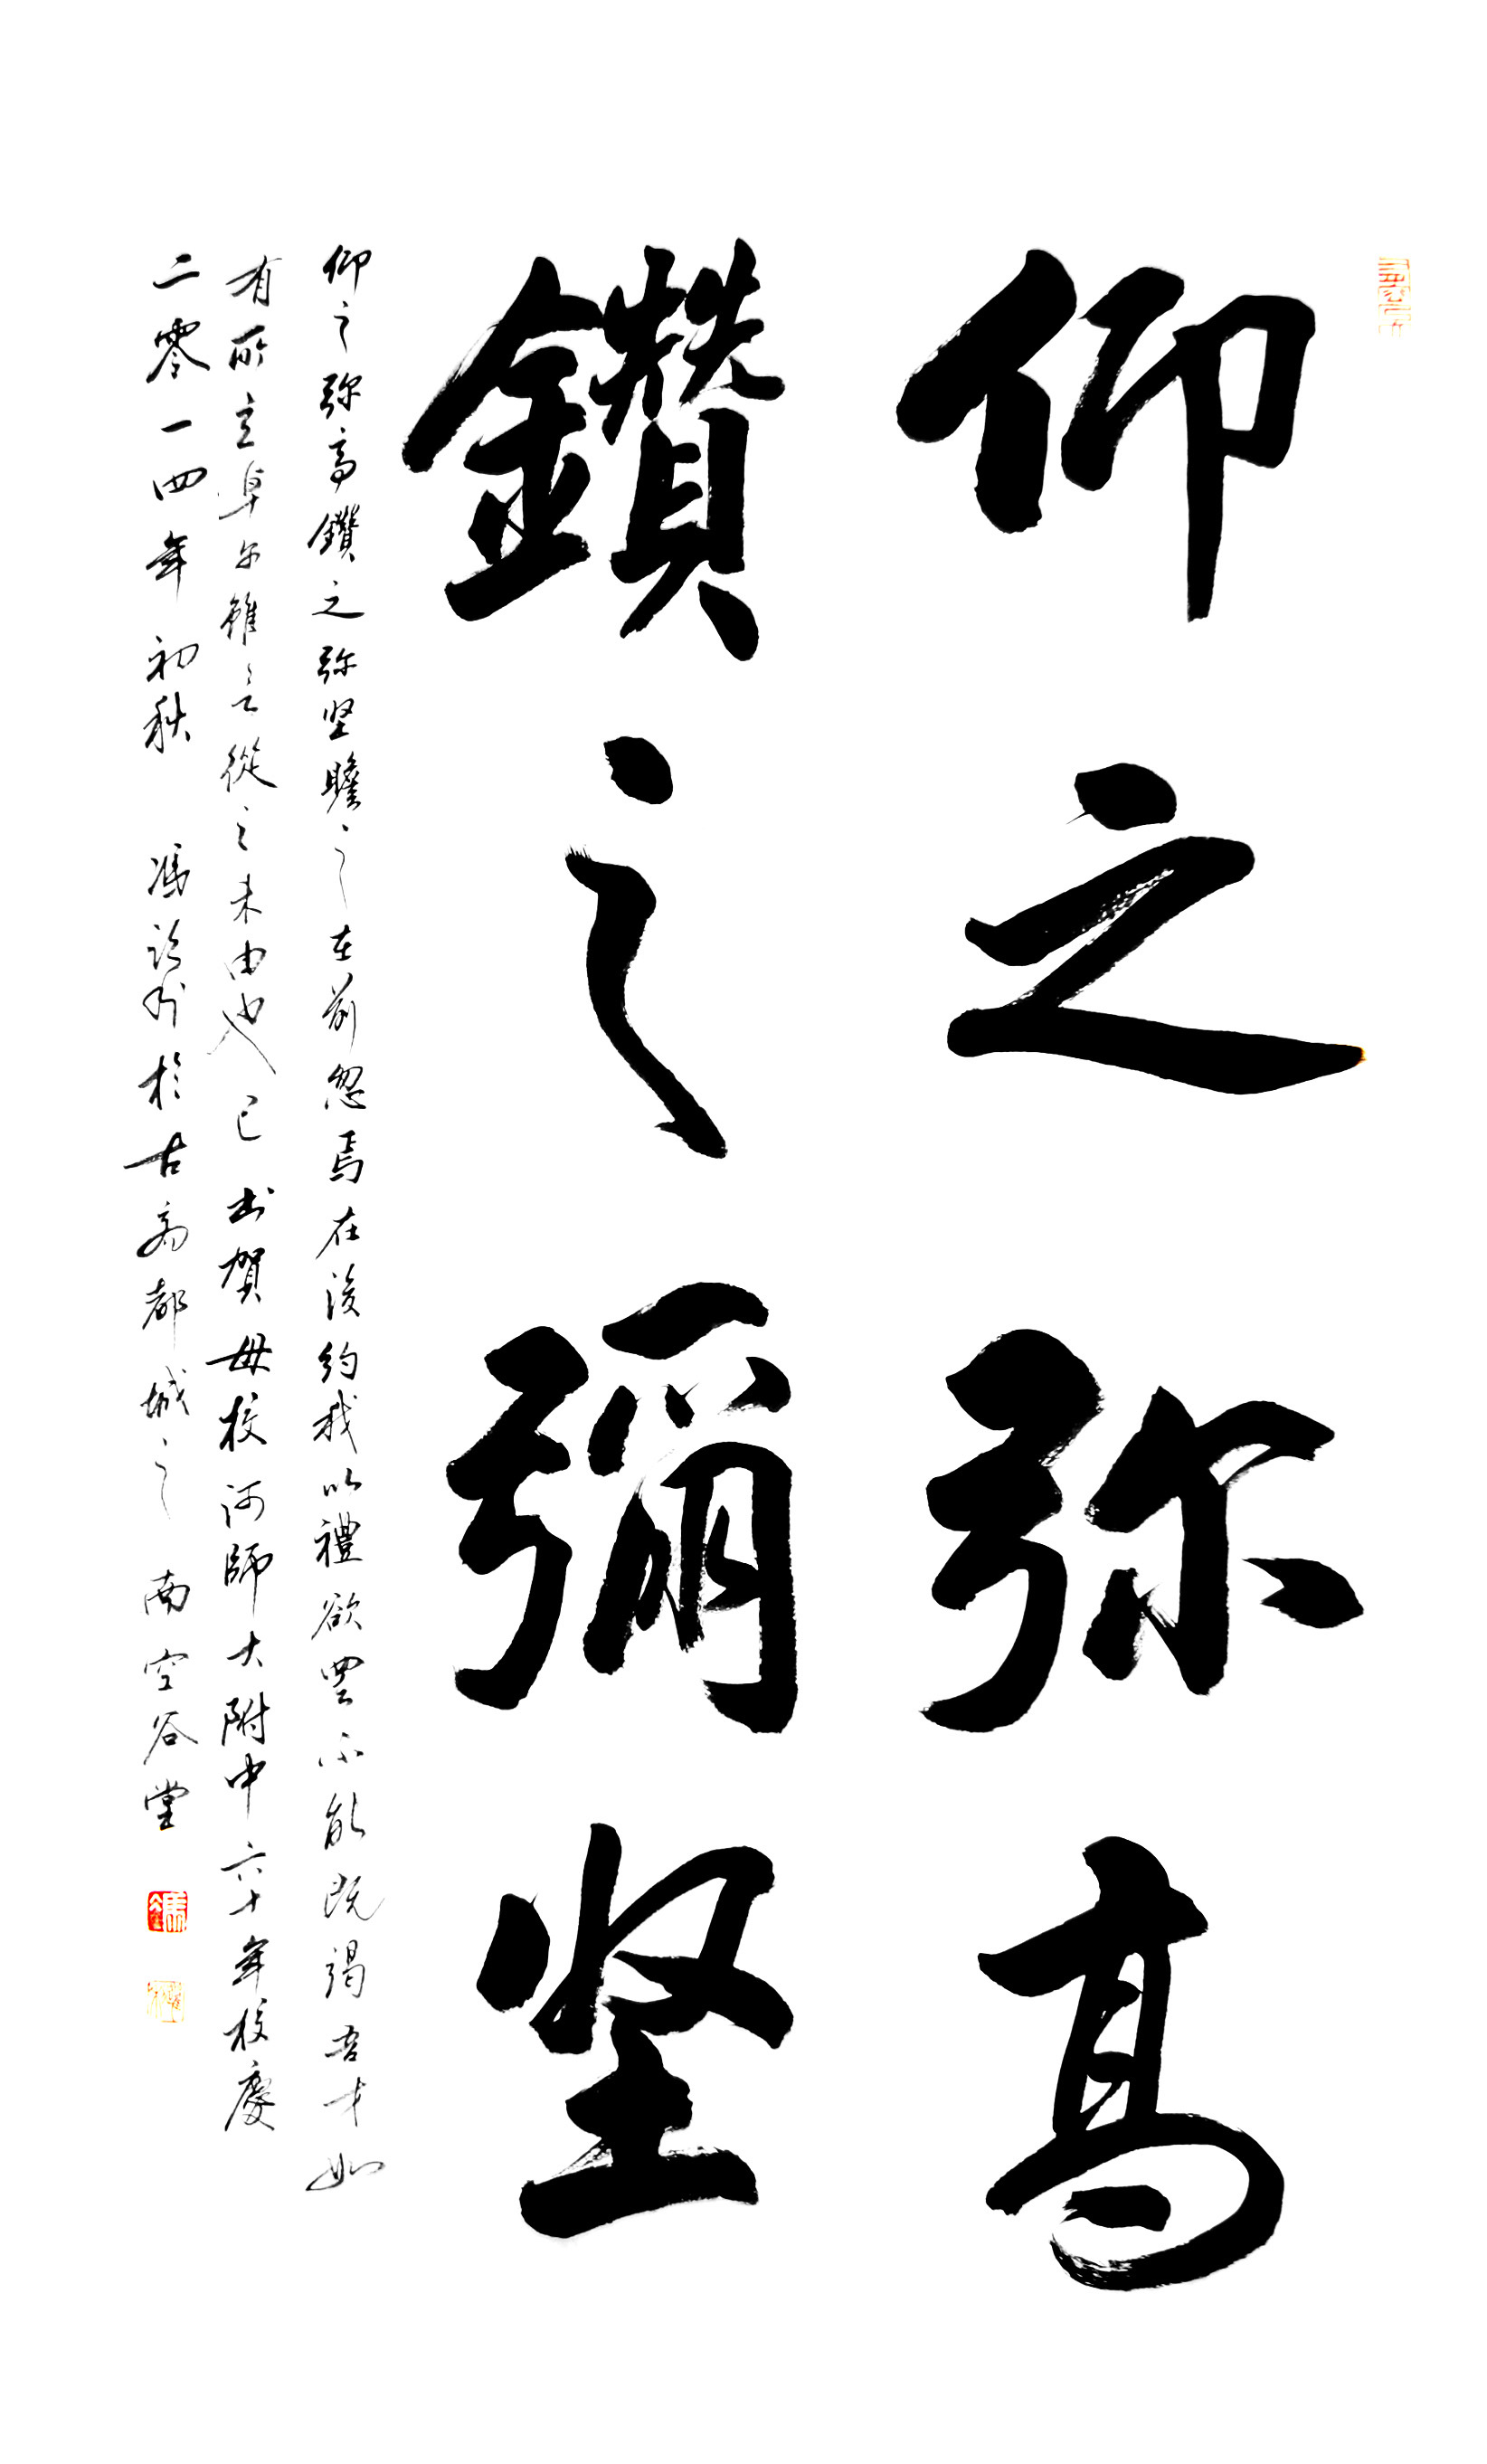 仰之弥高
鑽之彌坚
仰之弥高鑽之弥坚瞻之在前忽焉在後约我以禮欲罢不能既竭吾才如
有所立卓尔雖之欲從之末由也已 书贺母校河師大附中六十年校慶
二零一四年 初秋 馮 於古商都城之南空谷堂